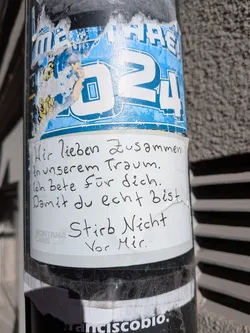 2024
Wir lieben Zusammen
in unserem Traum.
Ich bete für dich.
Damit du echt bist.
Stirb Nicht
Vor Mir.
franciscobio.